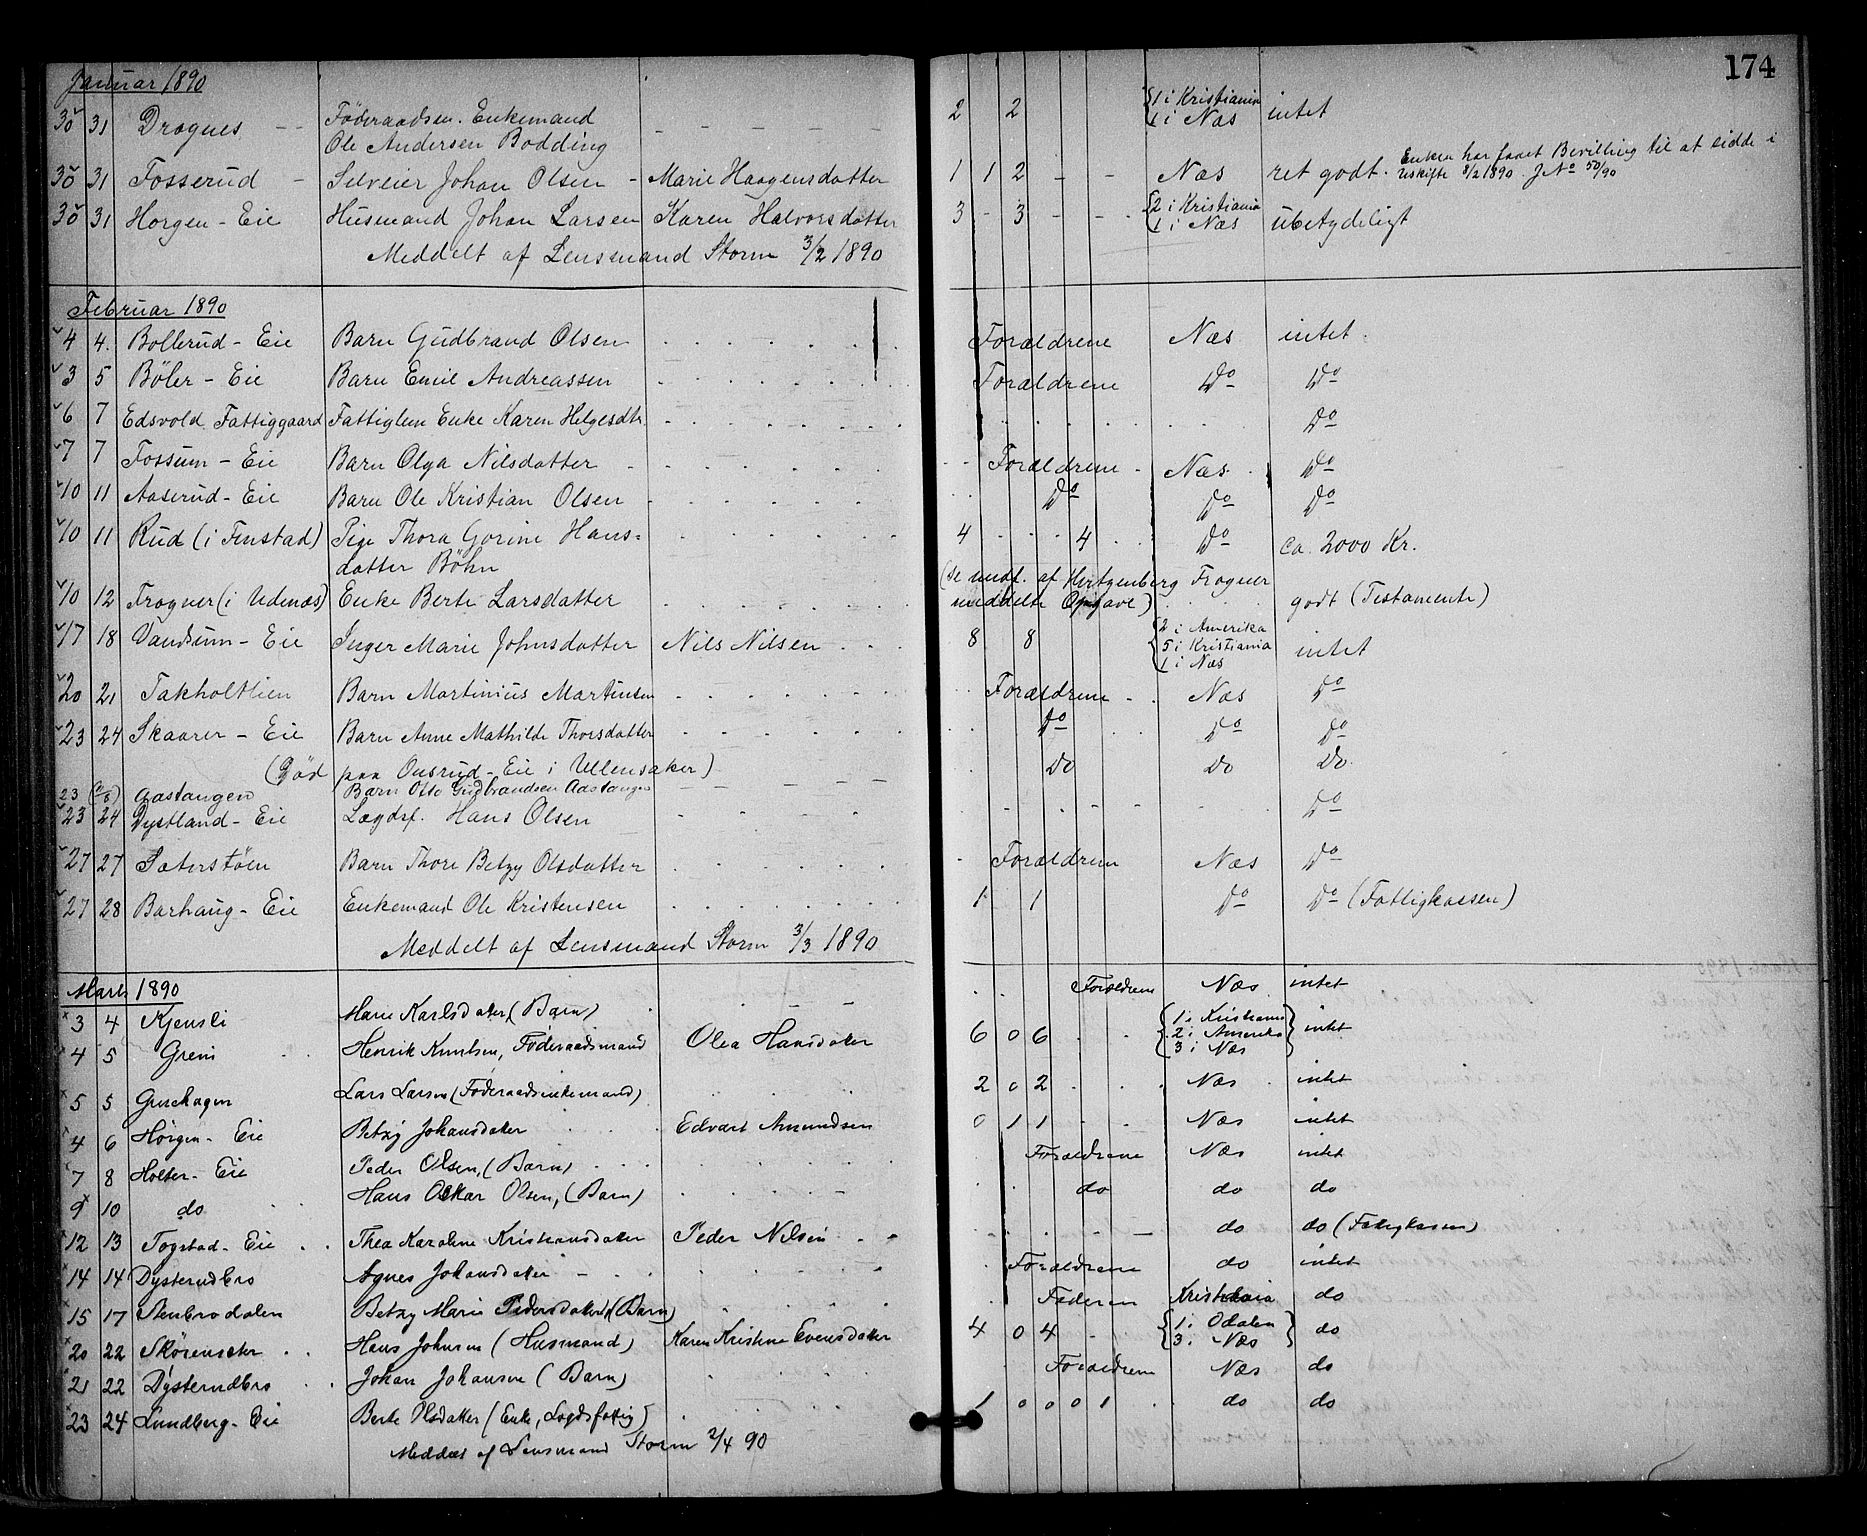 174
Januar 1890
30 31 Drognes - - Föderaadsm. Enkemand Ole Andersen Bodding - - - - - 2 2 {1 i Kristiania 1 i Næs intet
30 31 Fosserud - Selveier Johan Olsen - Marie Haagensdatter 1 1 2 - - Næs ret godt. Enken har faaet Bevilling til at sidde i Uskifte 8/2 1890. J No 50/90
30 31 Horgen - Eie Husmand Johan Larsen Karen Halvorsdatter 3 - 3 - - - {2 i Kristiania 1 i Næs ubetydeligt
Meddelt af Lensmand Storm 3/2 1890
Februar 1890
4 4. Bollerud - Eie Barn Gudbrand Olsen Forældrene Næs intet.
3 5 Böler - Eie Barn Emil Andreassen Forældrene Do Do
6 7 Edsvold Fattiggaard Fattiglem Enke Karen Helgesdtr. Do
7 7 Fossum - Eie Barn Olga Nilsdatter Forældrene - Næs Do
10 11 Aaserud - Eie Barn Ole Kristian Olsen Do Do Do
10 11 Rud (i Finstad) Pige Thora Gorine Hans=
datter Böhn 4 4 Do ca. 2000 Kr.
10 12 Frogner (i Udenæs) Enke Berte Larsdatter (se undt. af Hertzenberg Frogner
meddelte Opgave) godt (Testamente)
17 18 Vandsum - Eie Inger Marie Johnsdatter Nils Nilsen 8 8 {2 i Amerika 5 i Kristiania 1 i Næs intet
20 21 Takholtlien Barn Martinius Martinsen Forældrene Næs Do
23 24 Skaarer - Eie Barn Anne Mathilde Thorsdatter Do Do Do
(Död paa Onsrud - Eie i Ullensaker)
23 Aastangen Barn Otto Gudbrandsen Aastangen Do Do Do.
23 24 Dystland - Eie Lægdsf. Hans Olsen Do
27 27 Sæterstöen Barn Thore Betzy Olsdatter Forældrene Næs Do
27 28 Barhaug - Eie Enkemand Ole Kristensen 1 1 Do Do (Fattigkassen)
Meddelt af Lensmand Storm 3/3 1890
Marts 1890
3 4 Kjensli Marie Karlsdatter, (Barn) Forældrene Næs intet
4 5 Greni Henrik Knutsen, Föderaadsmand Olea Hansdatter 6 0 6 {1 i Kristiania 2 i Amerika 3 i Næs} intet
5 5 Grushagen Lars Larsen (Föderaadsenkemand) 2 0 2 Næs intet
4 6 Horgen - Eie Betzy Johansdatter Edvart Amundsen 0 1 1 Næs intet
7 8 Holter - Eie Peder Olsen, (Barn) Forældrene Næs intet
9 10 do Hans Oskar Olsen, (Barn) do do do
12 13 Togstad - Eie Thea Karoline Kristiansdatter Peder Nilsen do do (Fattigkassen)
14 14 Dysterudbro Agnes Johansdatter Forældrene do intet
15 17 Stenbrodalen Betzy Marie Pedersdatter (Barn) Faderen Kristiania do
20 22 Skörenseter Hans Johnsen (Husmand) Karen Kristine Evensdatter 4 0 4 {1 i Odalen 3 i Næs} do
21 22 Dysterudbro Johan Johansen (Barn) Forældrene Næs do
23 24 Lundberg - Eie Berte Olsdatter (Enke, Lægdsfattig) 1 0 0 0 1 do do
Meddelt af Lensmand Storm 2/4 90